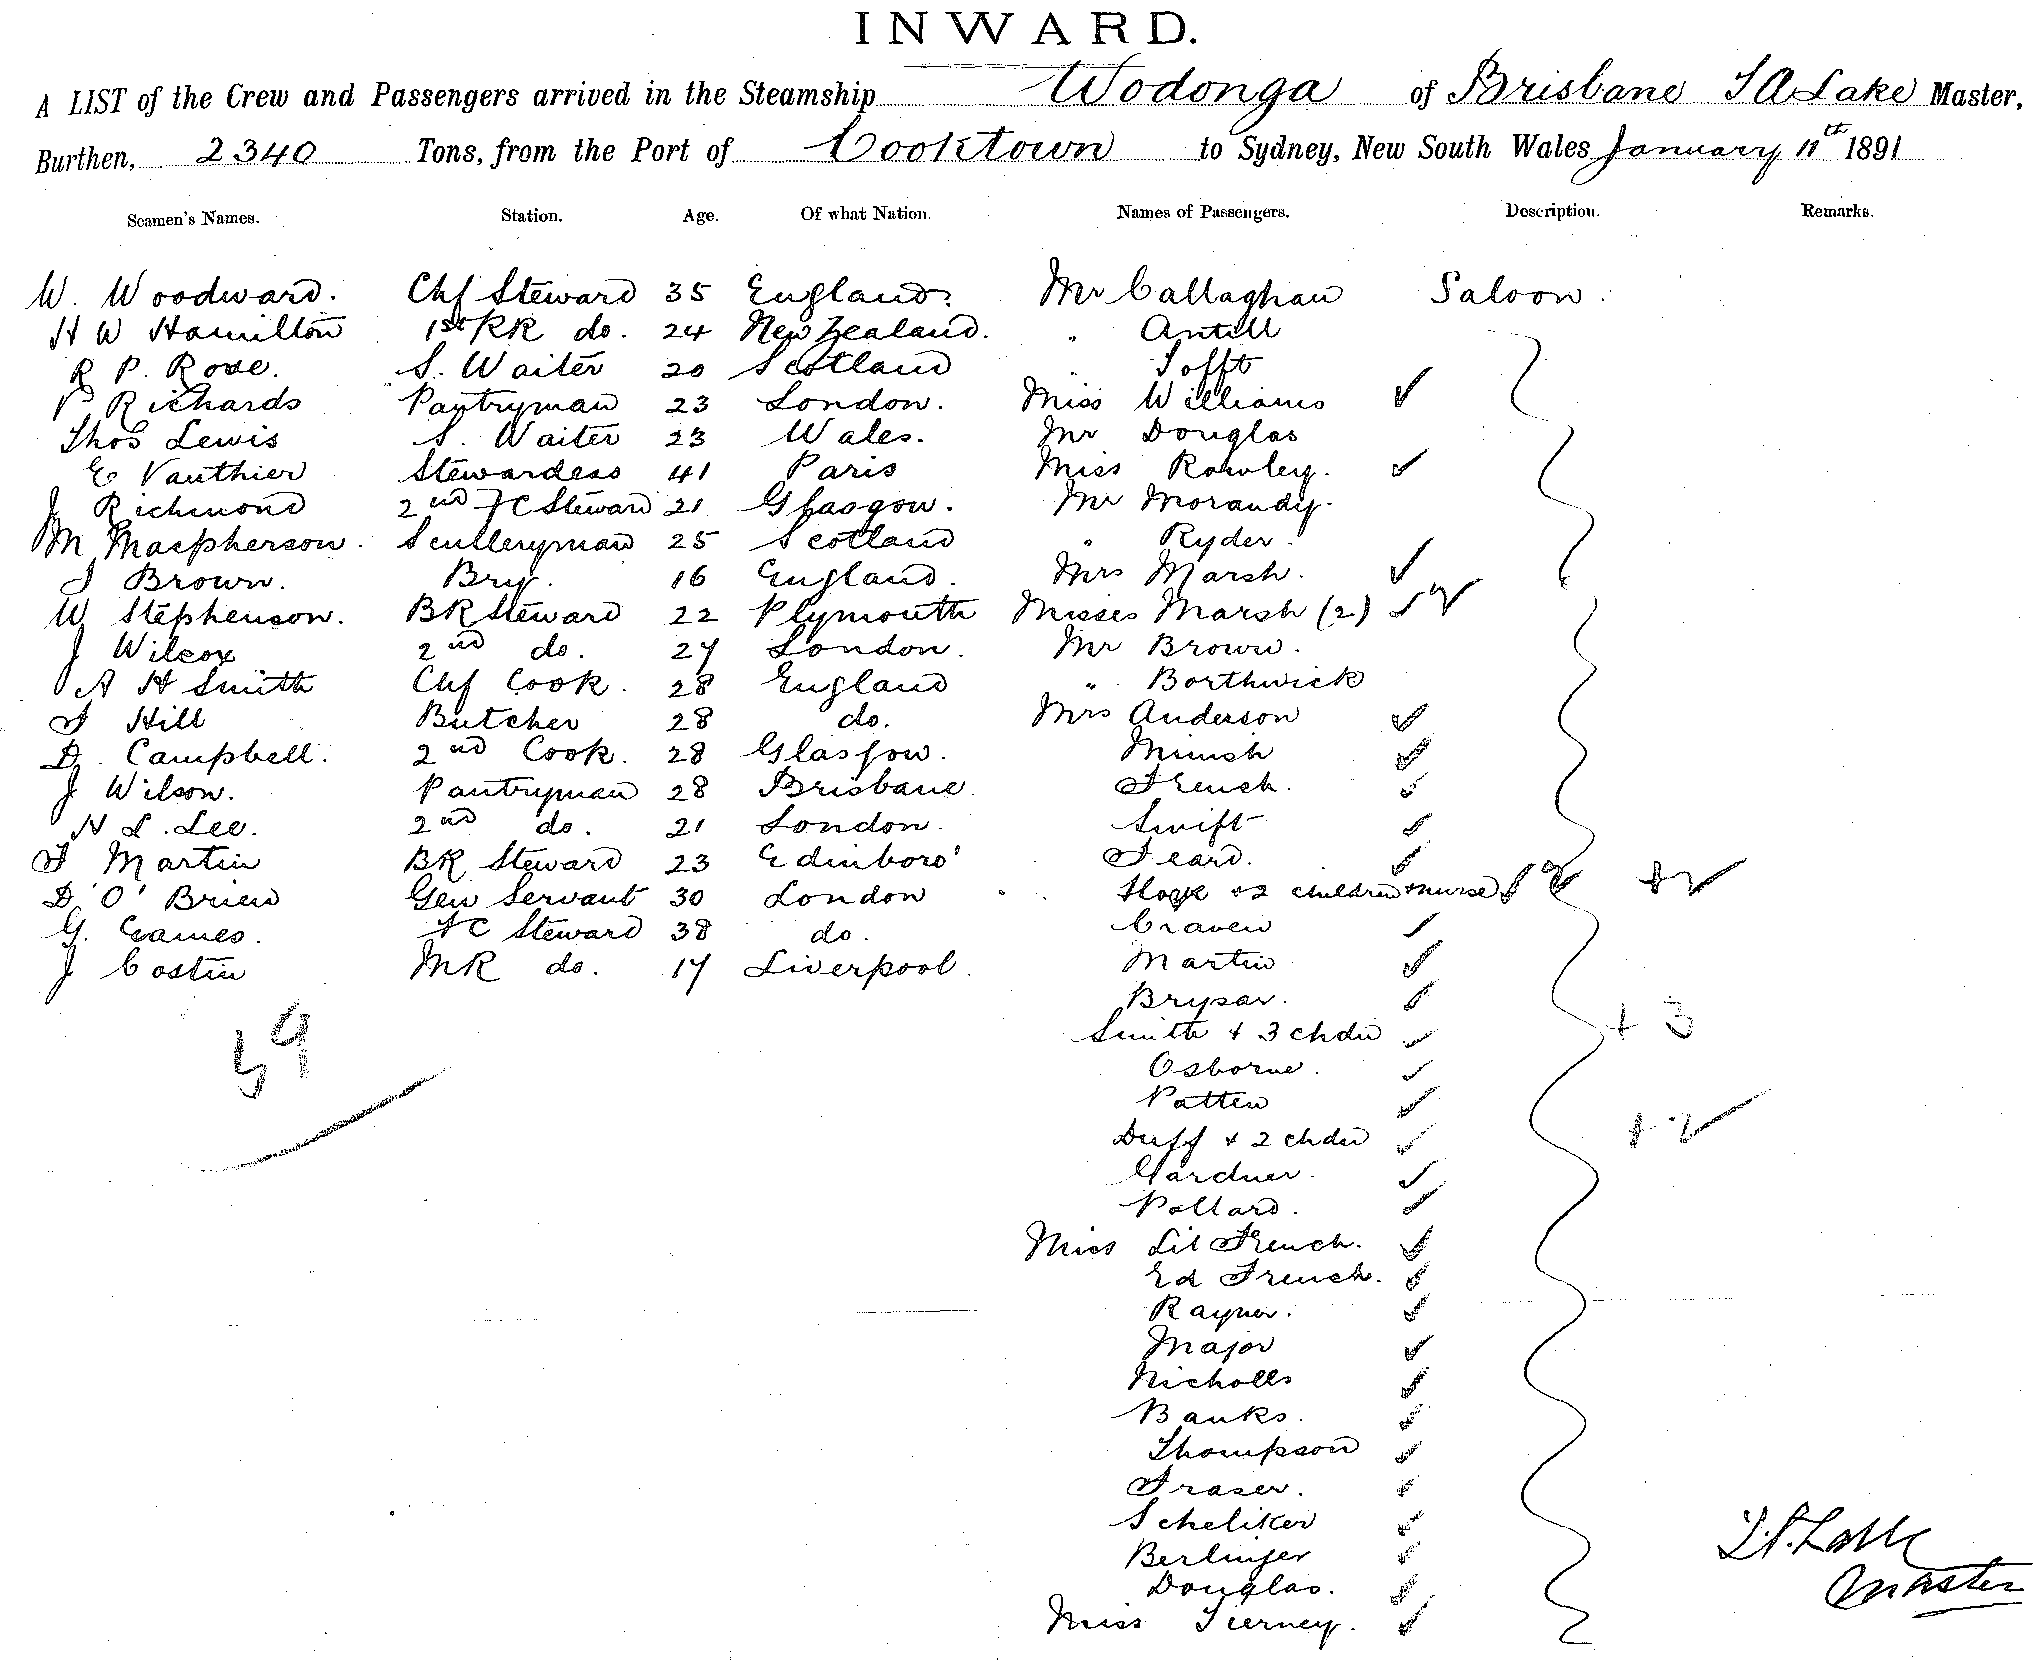 INWARD.
A LIST of the Crew and Passengers arrived in the Steamship Wodonga of Brisbane T A Lake Master,
Burthen, 2340 Tons, from the Port of Cooktown to Sydney, New South Wales January 11th 1891
Seamen's Names. Station. Age. Of what Nation. Names of Passengers. Description. Remarks.
W. Woodward. Chf Steward 35 England. Mr Callaghan Saloon.
H W Hamilton 1st RR do. 24 New Zealand. " Antill
R P. Rose. S. Waiter 20 Scotland " Tofft
P Richards Pantryman 23 London. Miss Williams
Thos Lewis S. Waiter 23 Wales. Mr Douglas
E Vauthier Stewardess 41 Paris Miss Rowley.
J Richmond 2nd FC Steward 21 Glasgow. Mr Morandy.
M Macpherson. Sculleryman 25 Scotland " Ryder.
J Brown. Bry. 16 England. Mrs Marsh.
W Stephenson. BR Steward 22 Plymouth Misses Marsh (2)
J Wilcox 2nd do. 27 London. Mr Brown.
A H Smith Chf Cook. 28 England " Borthwick
J Hill Butcher 28 do. Mrs Anderson
D. Campbell. 2nd Cook. 28 Glasgow. Minish
J Wilson. Pantryman 28 Brisbane French.
H L. Lee. 2nd do. 21 London. Swift
J Martin BR Steward 23 Edinboro' Feard.
D O'Brien Gen Servant 30 London + 2 children + nurse +2
G. Eames. FC Steward 38 do. Craven
J Costin MR do. 17 Liverpool. Martin
Brysar.
59 Smith + 3 chdn + 3
Osborne.
Patten
Duff + 2 chdn + 2
Gardner.
Pollard.
Miss Lil French.
Ed French.
Rayner.
Major
Nicholls
Banks.
Thompson
Fraser.
Scheliker
Berlinger
Douglas.
Miss Tierney.
T.A. Lake
Master